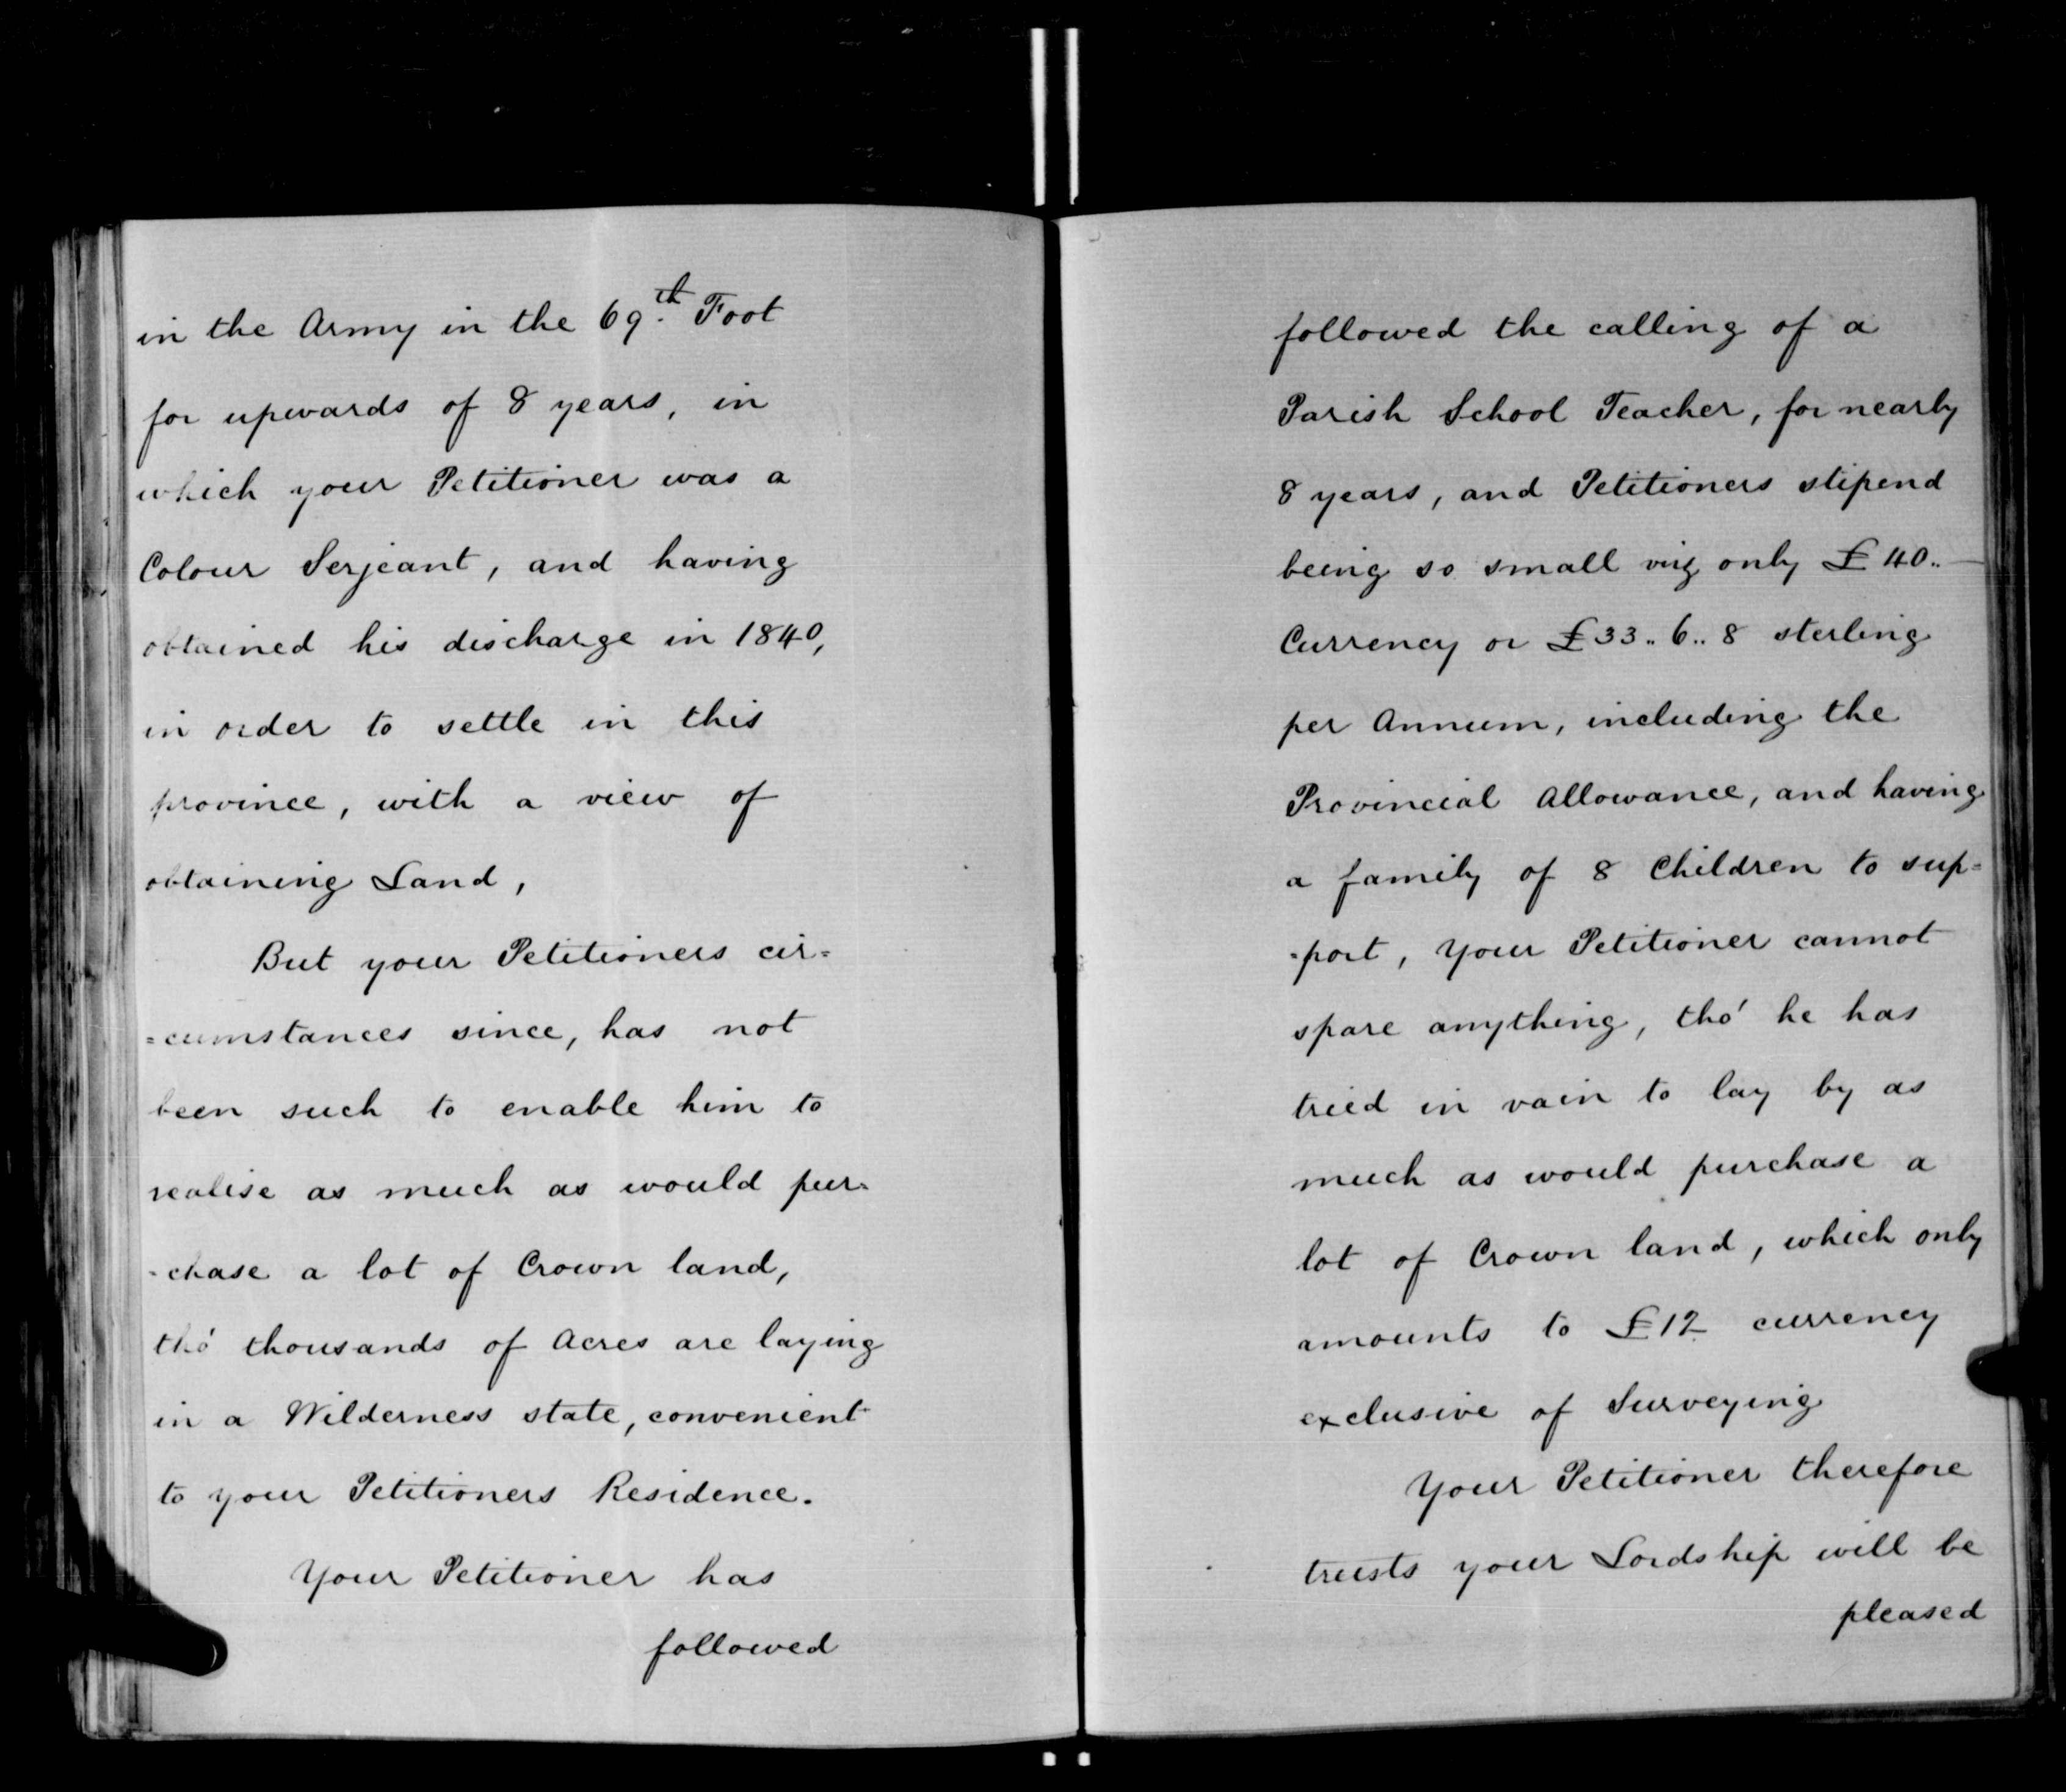 in the Army in the 69th Foot
for upwards of 8 years, in
which your Petitioner was a
Colour Serjeant, and having
obtained his discharge in 1840,
in order to settle in this
province, with a view of
obtaining Land,
But your Petitioners cir=
=cumstances since, has not
been such to enable him to
realise as much as would pur=
-chase a lot of Crown land,
tho' thousands of Acres are laying
in a Wilderness state, convenient
to your Petitioners Residence.
Your Petitioner has
followed
followed the calling of a
Parish School Teacher, for nearly
8 years, and Petitioners stipend
being so small viz only £40..—
Currency or £33..6..8 sterling
per Annum, including the
Provincial Allowance, and having
a family of 8 Children to sup=
=port, your Petitioner cannot
spare anything, tho' he has
tried in vain to lay by as
much as would purchase a
lot of Crown land, which only
amounts to £12 currency
exclusive of Surveying
Your Petitioner therefore
trusts your Lordship will be
pleased